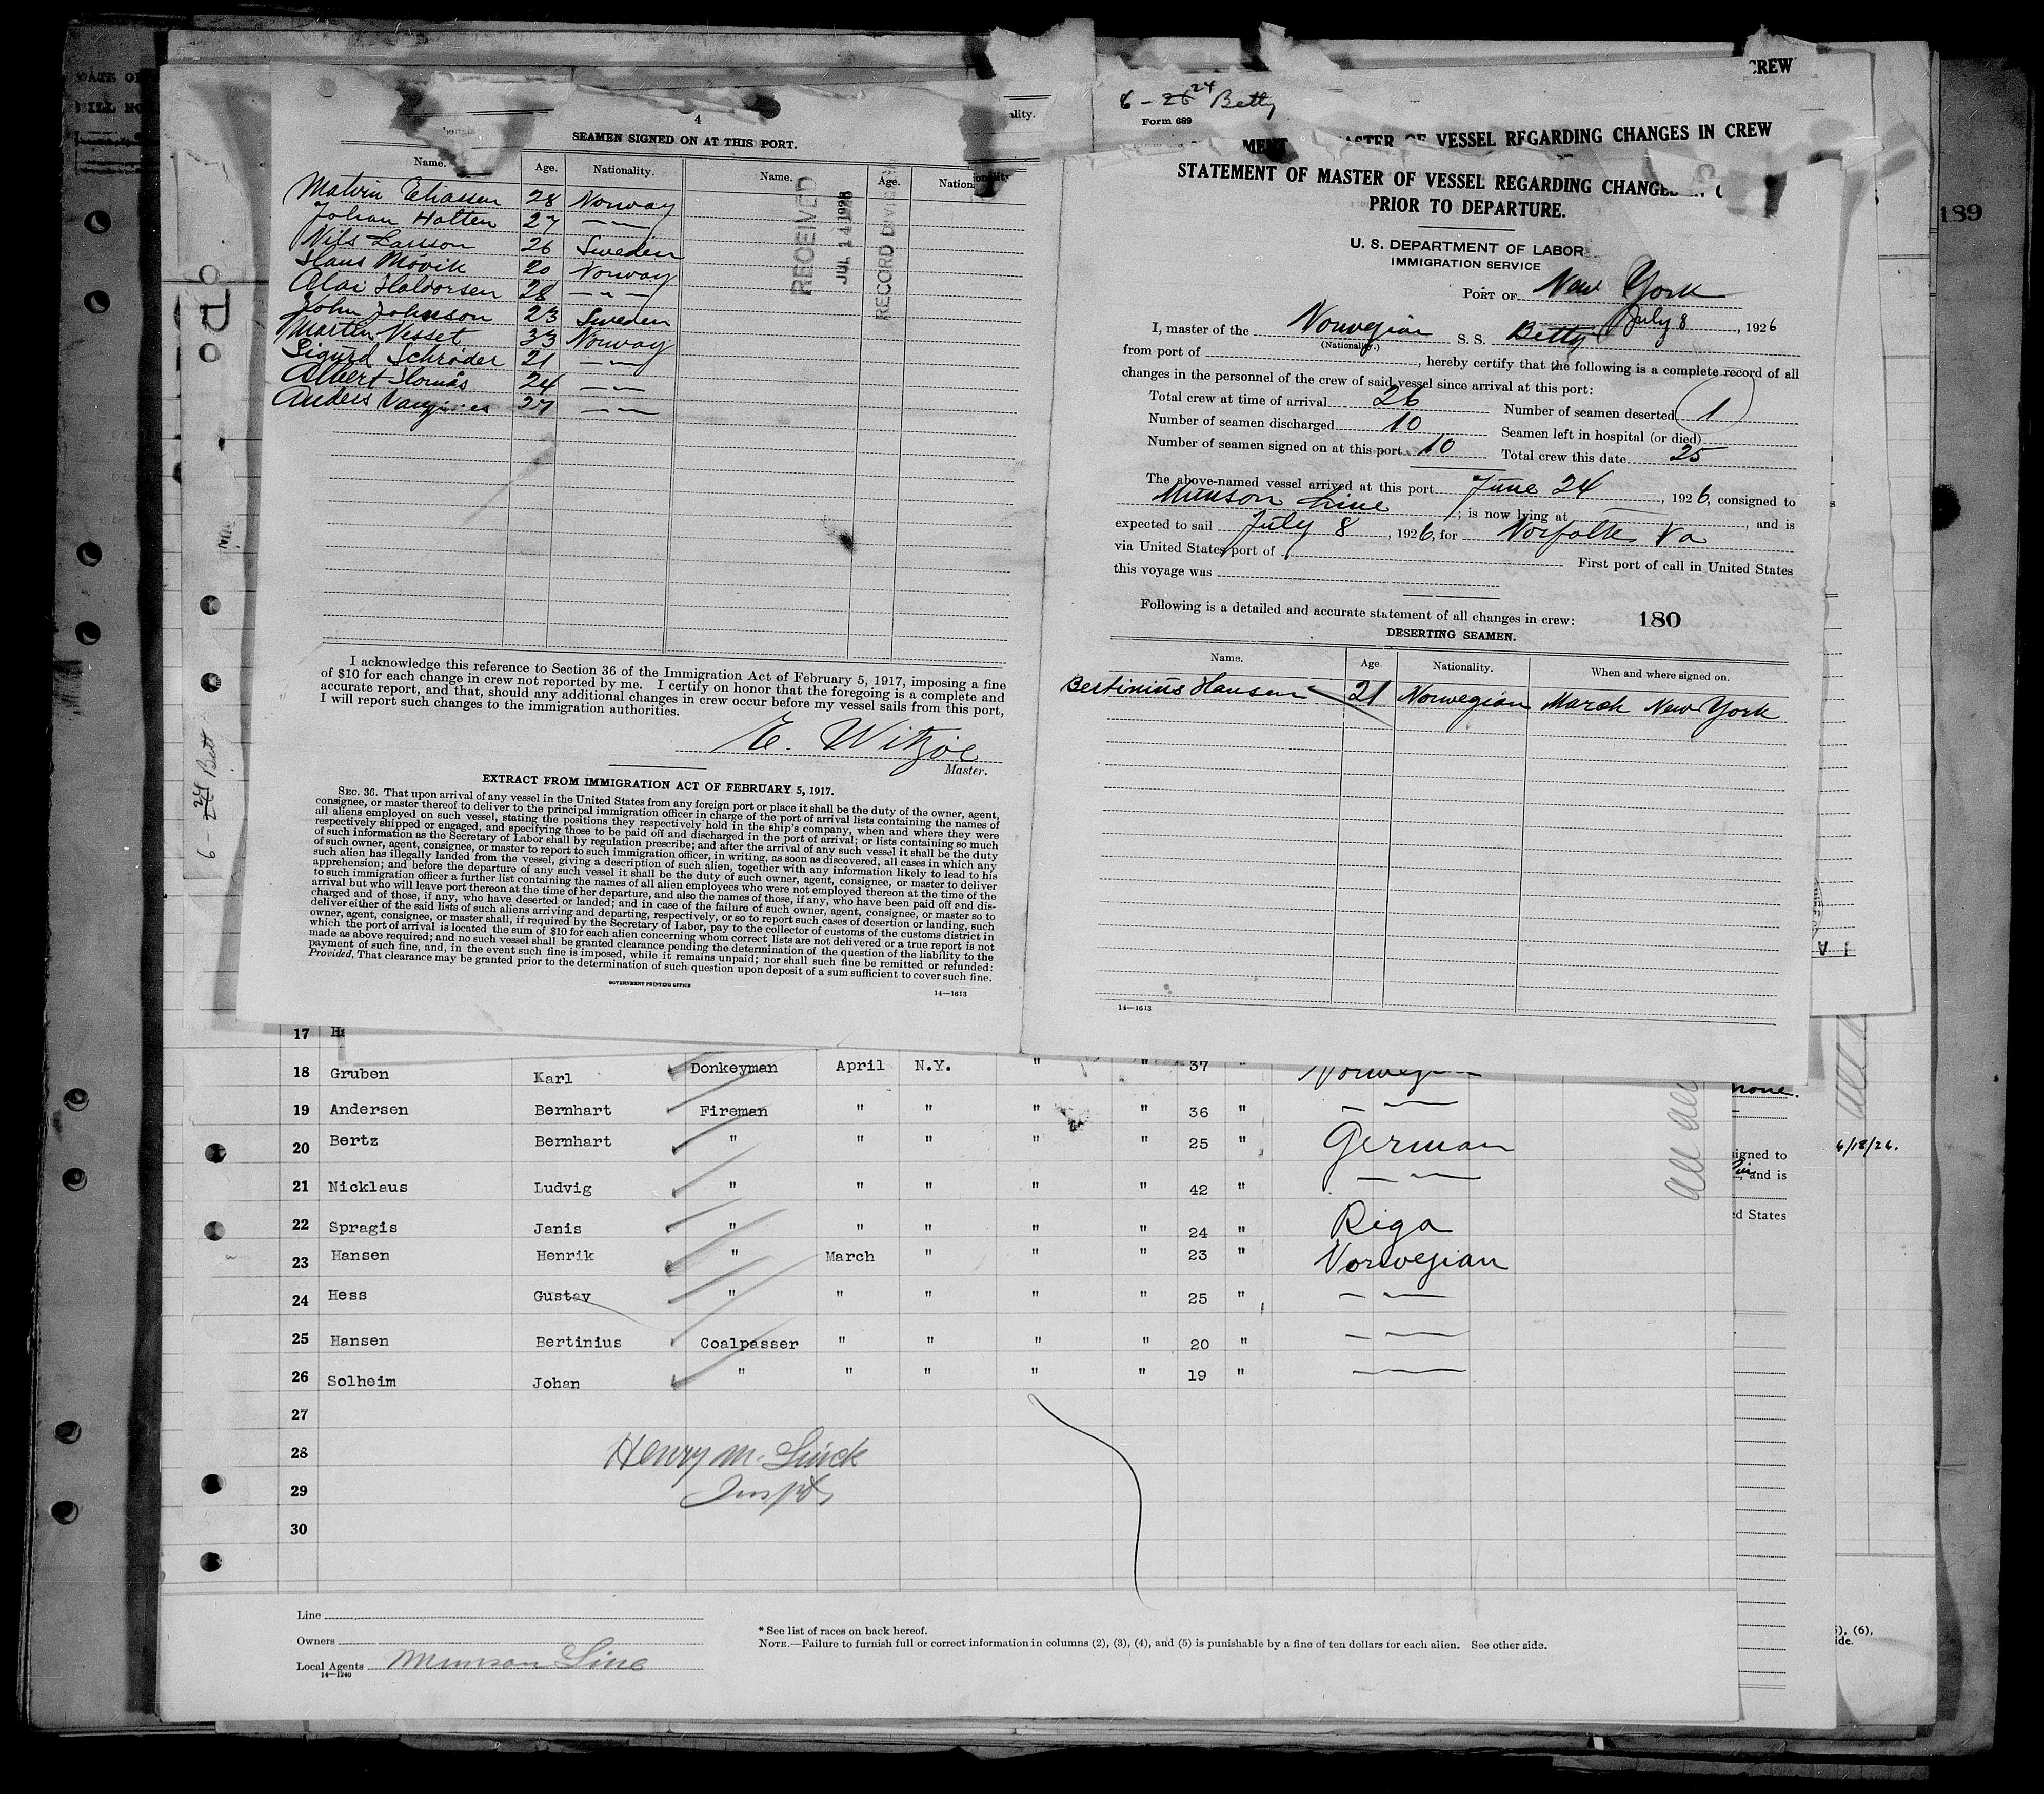 4
SEAMEN SIGNED ON AT THIS PORT.
Name. Age. Nationality. Name. Age. Nation
Malvin Eliassen 28 Norway
Johan Holten 27 —〃—
Nils Larsson 26 Sweden
Hans Movik 20 Norway
Olai Haldorsen 28 —〃—
John Johnson 23 Sweden
Martin Vesset 33 Norway
Sigurd Schrøder 21 —〃—
Albert 24 —〃—
Anders 27 —〃—
RECEIVED
JUL 14 1926
RECORD DIVISION
I acknowledge this reference to Section 36 of the Immigration Act of February 5, 1917, imposing a fine
of $10 for each change in crew not reported by me. I certify on honor that the foregoing is a complete and
accurate report, and that, should any additional changes in crew occur before my vessel sails from this port,
I will report such changes to the immigration authorities.
E. Witzøe
Master.
EXTRACT FROM IMMIGRATION ACT OF FEBRUARY 5, 1917.
SEC. 36. That upon arrival of any vessel in the United States from any foreign port or place it shall be the duty of the owner, agent,
consignee, or master thereof to deliver to the principal immigration officer in charge of the port of arrival lists containing the names of
all aliens employed on such vessel, stating the positions they respectively hold in the ship's company, when and where they were
respectively shipped or engaged, and specifying those to be paid off and discharged in the port of arrival; or lists containing so much
of such information as the Secretary of Labor shall by regulation prescribe; and after the arrival of any such vessel it shall be the duty
of such owner, agent, consignee, or master to report to such immigration officer, in writing, as soon as discovered, all cases in which any
such alien has illegally landed from the vessel, giving a description of such alien, together with any information likely to lead to his
apprehension; and before the departure of any such vessel it shall be the duty of such owner, agent, consignee, or master to deliver
to such immigration officer a further list containing the names of all alien employees who were not employed thereon at the time of the
arrival but who will leave port thereon at the time of her departure, and also the names of those, if any, who have been paid off and dis-
charged and of those, if any, who have deserted or landed; and in case of the failure of such owner, agent, consignee, or master so to
deliver either of the said lists of such aliens arriving and departing, respectively, or so to report such cases of desertion or landing, such
owner, agent, consignee, or master shall, if required by the Secretary of Labor, pay to the collector of customs of the customs district in
which the port of arrival is located the sum of $10 for each alien concerning whom correct lists are not delivered or a true report is not
made as above required; and no such vessel shall be granted clearance pending the determination of the question of the liability to the
payment of such fine, and, in the event such fine is imposed, while it remains unpaid; nor shall such fine be remitted or refunded:
Provided, That clearance may be granted prior to the determination of such question upon deposit of a sum sufficient to cover such fine.
GOVERNMENT PRINTING OFFICE
14—1613
CREW
6 - 26 24 Betty
Form 689
MENT MASTER OF VESSEL REGARDING CHANGES IN CREW
STATEMENT OF MASTER OF VESSEL REGARDING CHANGES IN C
PRIOR TO DEPARTURE.
U. S. DEPARTMENT OF LABOR
IMMIGRATION SERVICE
PORT OF New York
July 8, 1926
I, master of the Norwegian S. S. Betty
(Nationality.)
from port of , hereby certify that the following is a complete record of all
changes in the personnel of the crew of said vessel since arrival at this port:
Total crew at time of arrival 26 Number of seamen deserted 1
Number of seamen discharged 10 Seamen left in hospital (or died)
Number of seamen signed on at this port 10 Total crew this date 25
The above-named vessel arrived at this port June 24, 1926, consigned to
Munson Line; is now lying at , and is
expected to sail July 8, 1926, for Norfolk Va
via United States port of First port of call in United States
this voyage was
Following is a detailed and accurate statement of all changes in crew: 180
DESERTING SEAMEN.
Name. Age. Nationality. When and where signed on.
Bertinius Hansen 21 Norwegian March New York
14—1613
189
6 - 24 Bett
17 Ha
18 Gruben Karl Donkeyman April N.Y. " " 37 " Norwegian
19 Andersen Bernhart Fireman " " " " 36 " — —
20 Bertz Bernhart " " " " " 25 " German
21 Nicklaus Ludvig " " " " " 42 " — —
22 Spragis Janis " " " " " 24 " Riga
23 Hansen Henrik " March " " " 23 " Norwegian
24 Hess Gustav " " " " " 25 " — —
25 Hansen Bertinius Coalpasser " " " " 20 " — —
26 Solheim Johan " " " " " 19 " — —
27
28
29
30
Henry M. Linck
Inspt.
none.
signed to
, and is
ed States
6/18/26.
Line
Owners
Local Agents Munson Line
14—1240
* See list of races on back hereof.
NOTE.—Failure to furnish full or correct information in columns (2), (3), (4), and (5) is punishable by a fine of ten dollars for each alien. See other side.
), (6),
ide.